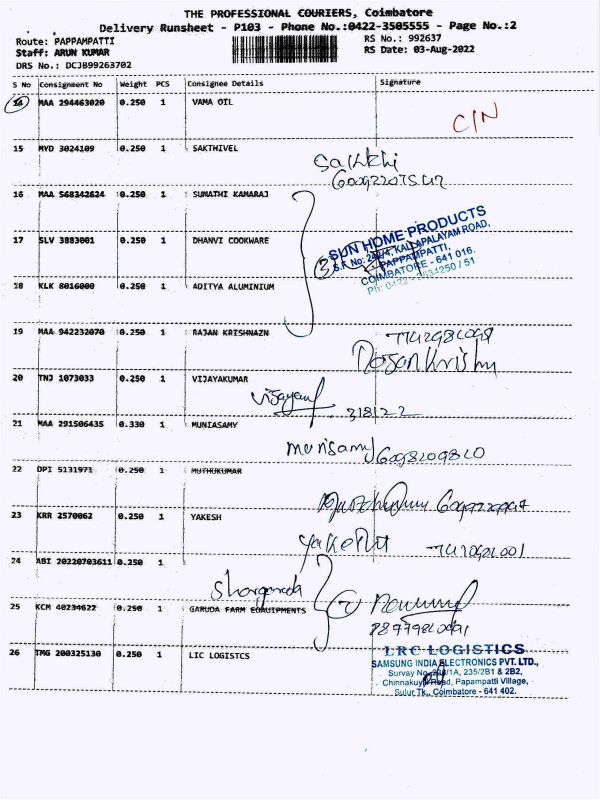 THE PROFESSIONAL COURIERS, Coimbatore
Delivery Runsheet - P103 - Phone No.:0422-3505555 - Page No.:2
Route: PAPPAMPATTI
RS No.: 992637
Staff: ARUN KUMAR
RS Date: 03-Aug-2022
DRS No.: DCJB99263702
S No Consignment No Weight PCS Consignee Details Signature
14 MAA 294463020 0.250 1 VAMA OIL
C/N
15 MYD 3024109 0.250 1 SAKTHIVEL
Sakthi
16 MAA 568342624 0.250 1 SUMATHI KAMARAJ
17 SLV 3883001 0.250 1 DHANVI COOKWARE
SUN HOME PRODUCTS
KALLAPALAYAM ROAD,
PAPPAMPATTI,
COIMBATORE - 641 016.
18 KLK 8016000 0.250 1 ADITYA ALUMINIUM
19 MAA 942232070 0.250 1 RAJAN KRISHNAZN
20 TNJ 1073033 0.250 1 VIJAYAKUMAR
21 MAA 291506435 0.330 1 MUNIASAMY
munisamy
22 DPI 5131971 0.250 1 MUTHUKUMAR
23 KRR 2570062 0.250 1 YAKESH
24 ABI 20220703611 0.250 1
25 KCM 40234622 0.250 1 GARUDA FARM EQAUIPMENTS
26 TMG 200325130 0.250 1 LIC LOGISTCS
LRC LOGISTICS
SAMSUNG INDIA ELECTRONICS PVT. LTD.,
Survay No. 235/2B1 & 2B2,
Road, Papampatti Village,
Sulur Tk., Coimbatore - 641 402.